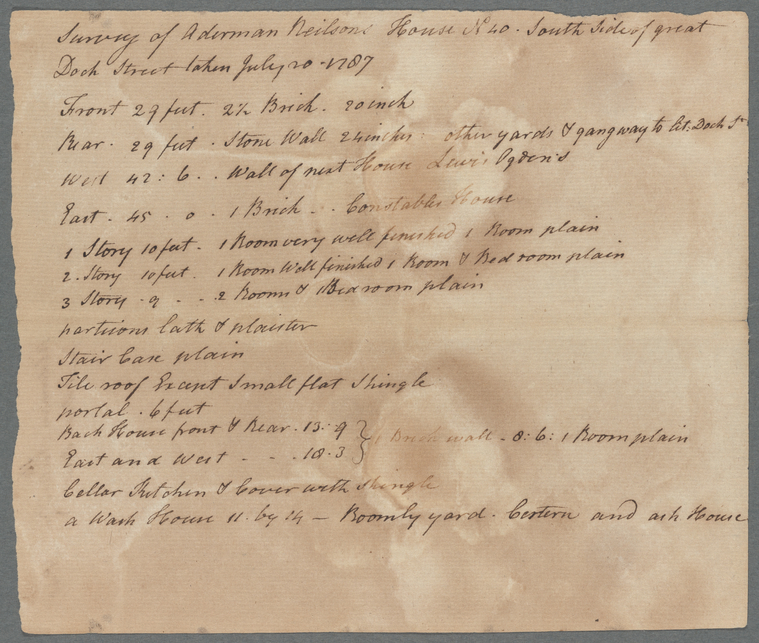 Survey of Aderman Neilsons House No 40 . South Side of great
Dock Street taken July 20 - 1787
Front 29 feet . 2½ Brick . 20 inch
Rear . 29 feet . Stone Wall 24 inches . other yards & gangway to Lit: Dock St
West 42 : 6 . . Wall of next House Lewis Ogden's
East . 45 . 0 . 1 Brick . . Constables House
1 Story 10 feet . 1 Room very well finished 1 Room plain
2 . Story 10 feet . 1 Room Well finished 1 Room & Bed room plain
3 Story . 9 . . 2 Rooms & 1 Bedroom plain
partisons lath & plaister
Stair Case plain
Tile roof Except Small flat Shingle
portal . 6 feet
Back House front & Rear . 13 : 9 } 1 Brick wall . 8 : 6 : 1 Room plain
East and West - - . 18 . 3
Cellar Kitchen & Cover with Shingle
a Wash House 11 . by 14 — Roomly yard . Cestern and ash House